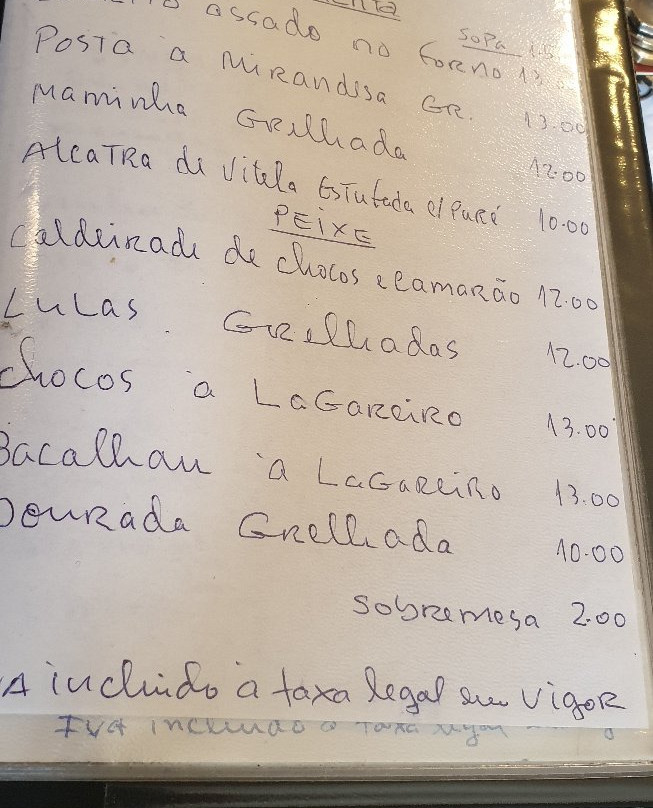 Sopa
assado no forno 13.
Posta à Mirandesa GR. 13.00
Maminha Grelhada 12.00
Alcatra de Vitela Estufada c/ Puré 10.00
PEIXE
Caldeirada de chocos e camarão 12.00
Lulas Grelhadas 12.00
Chocos à Lagareiro 13.00
Bacalhau à Lagareiro 13.00
Dourada Grelhada 10.00
Sobremesa 2.00
A incluido à taxa legal em vigor
IVA incluido à taxa legal